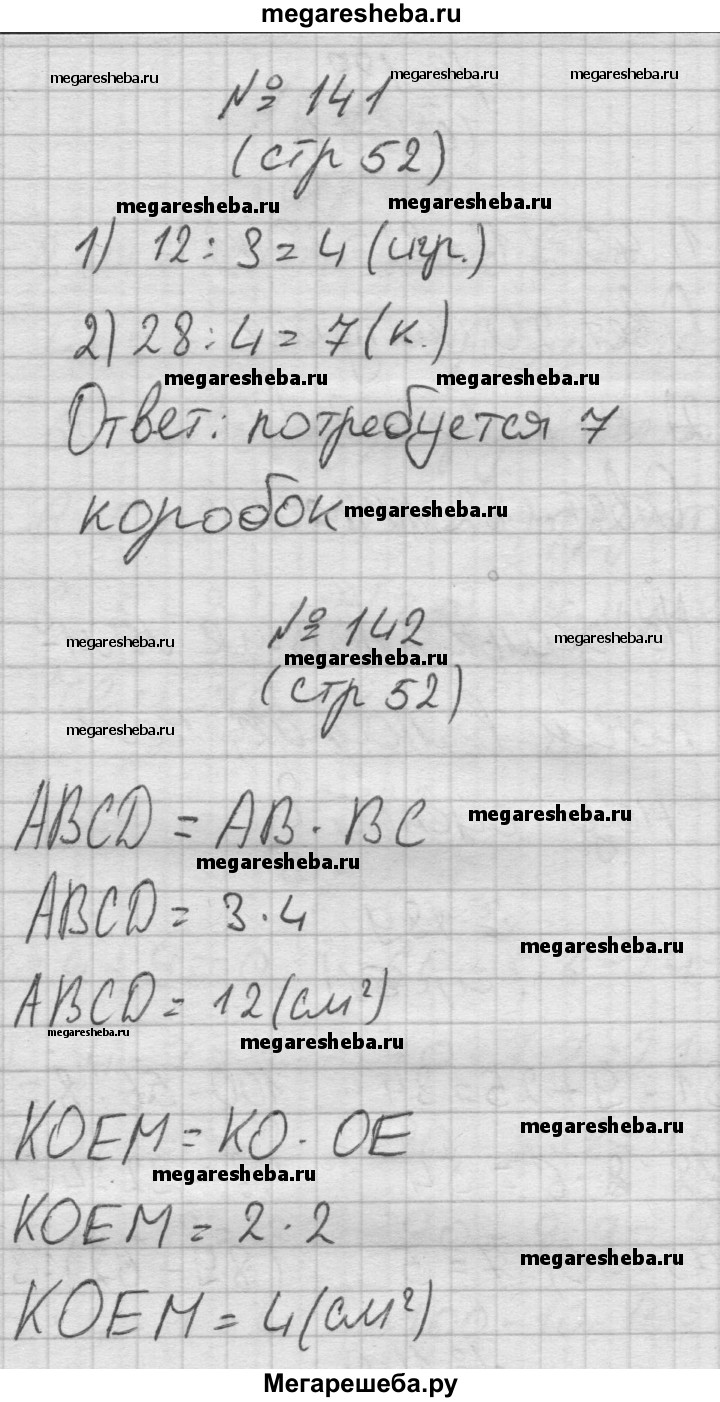 megaresheba.ru
megaresheba.ru megaresheba.ru megaresheba.ru
№ 141
(стр 52)
megaresheba.ru megaresheba.ru
1) 12 : 3 = 4 (игр.)
2) 28 : 4 = 7 (к.)
megaresheba.ru megaresheba.ru
Ответ: потребуется 7
коробок megaresheba.ru
№ 142
megaresheba.ru megaresheba.ru megaresheba.ru
(стр 52)
megaresheba.ru
ABCD = AB · BC megaresheba.ru
megaresheba.ru
ABCD = 3 · 4
megaresheba.ru
ABCD = 12 (см²)
megaresheba.ru megaresheba.ru
KOEM = KO · OE megaresheba.ru
megaresheba.ru
KOEM = 2 · 2
megaresheba.ru
KOEM = 4 (см²)
Мегарешеба.ру